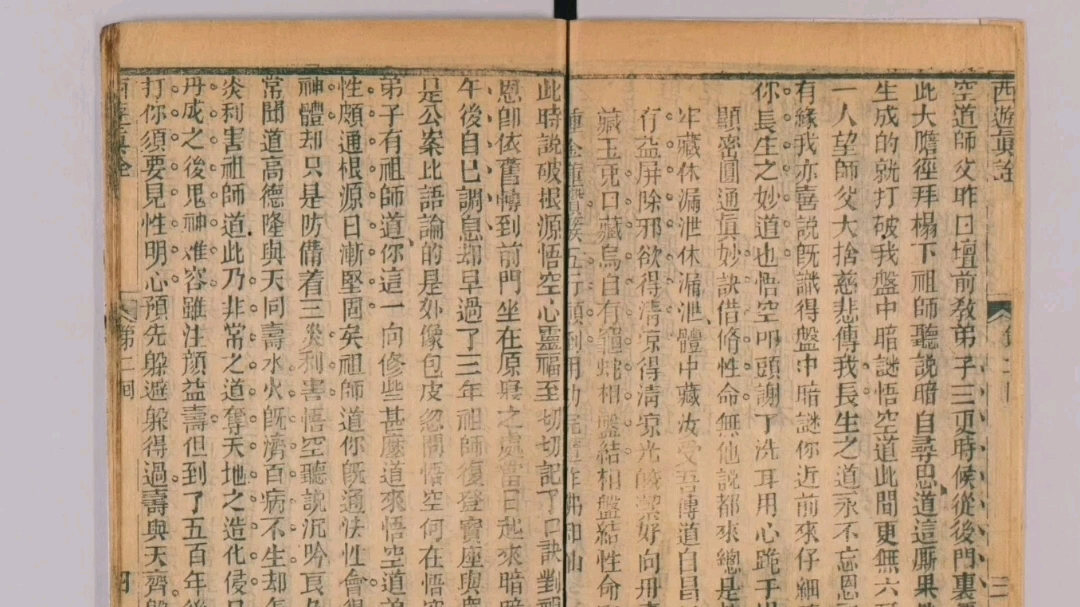 西遊眞詮
空道師父昨日壇前敎弟子三更時候從後門裏
此大膽徑拜榻下祖師聽說暗自尋思道這厮果
生成的就打破我盤中暗謎悟空道此間更無六
一人望師父大捨慈悲傳我長生之道永不忘恩
有緣我亦喜說旣識得盤中暗謎你近前來仔細
你長生之妙道也悟空叩頭謝了洗耳用心跪于
顯密圓通眞妙訣借脩性命無他說都來總是
牢藏休漏泄休漏泄體中藏汝受吾傳道自昌
有益屏除邪欲得淸凉得淸凉光皎潔好向丹
藏玉兎日藏烏自有龜蛇相盤結相盤結性命
五行顚倒用功完 作佛和仙
此時說破根源悟空心靈福至切切記了口訣對祖
恩卽依舊轉到前門坐在原寢之處當日起來暗暗
午後自己調息却早過了三年祖師復登寶座與
是公案比語論的是外像包皮忽問悟空何在悟
弟子有祖師道你這一向修些甚麽道來悟空道
性頗通根源日漸堅固矣祖師道你旣通法性會得
神體却只是防備着三災利害悟空聽說沉吟良久
常聞道高德隆與天同壽水火旣濟百病不生却
災利害祖師道此乃非常之道奪天地之造化侵
丹成之後鬼神難容雖注顏益壽但到了五百年後
打你須要見性明心預先躱避躱得過壽與天齊
西遊眞詮
第二回
四